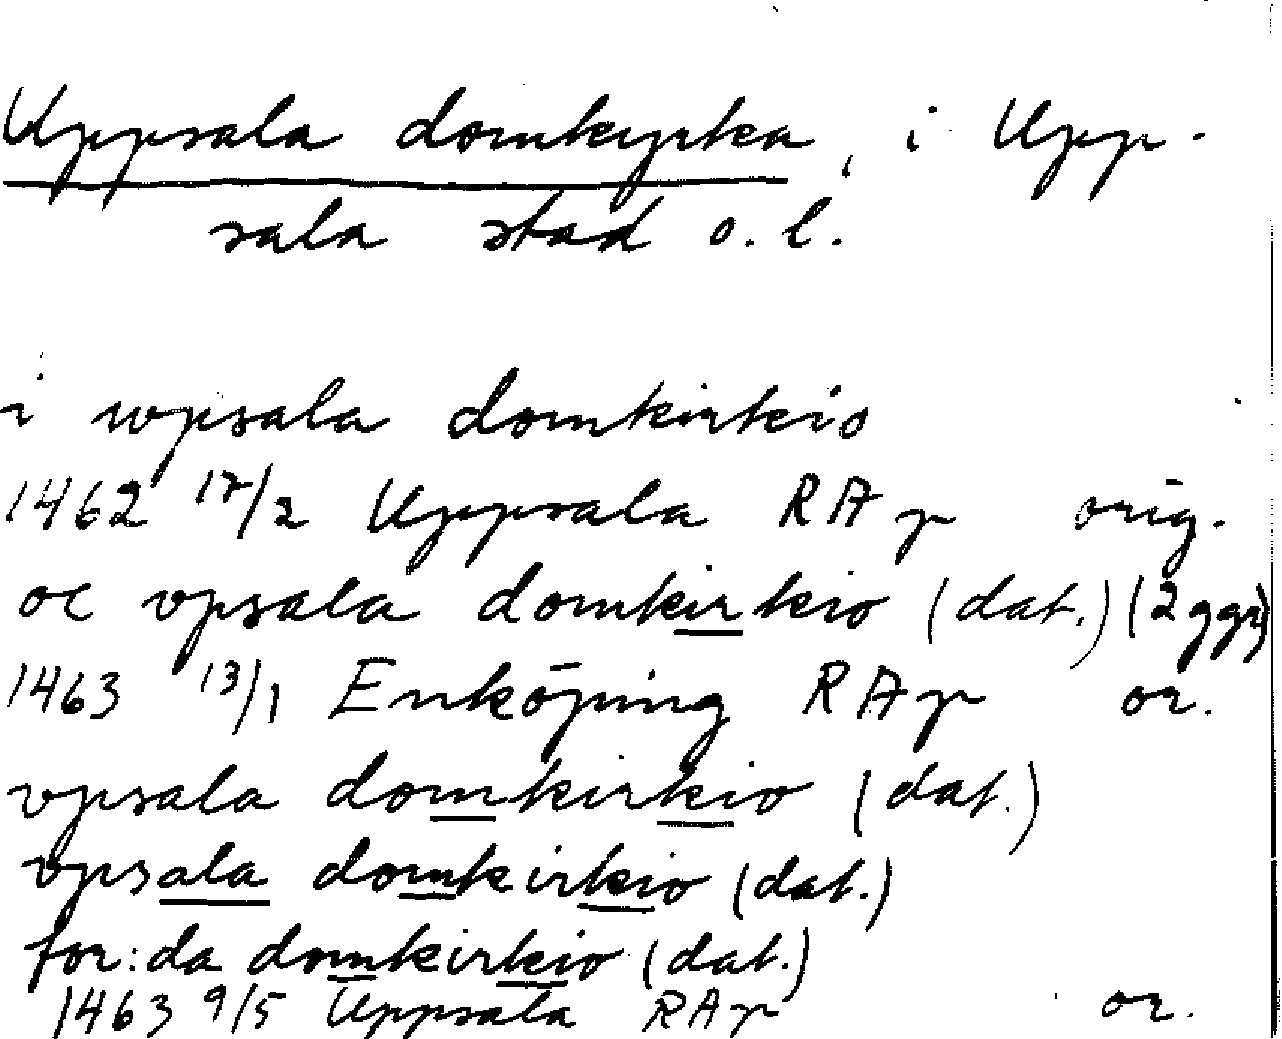 Uppsala domkyrka, i Upp-
sala stad o. l.
i wpsala domkirkio
1462 17/2 Uppsala RAp orig.
oc vpsala domkirkio (dat.) (2 ggr)
1463 13/1 Enköping RAp or.
vpsala domkirkio (dat.)
vpsala domkirkio (dat.)
for:da domkirkio (dat.)
1463 9/5 Uppsala RAp or.